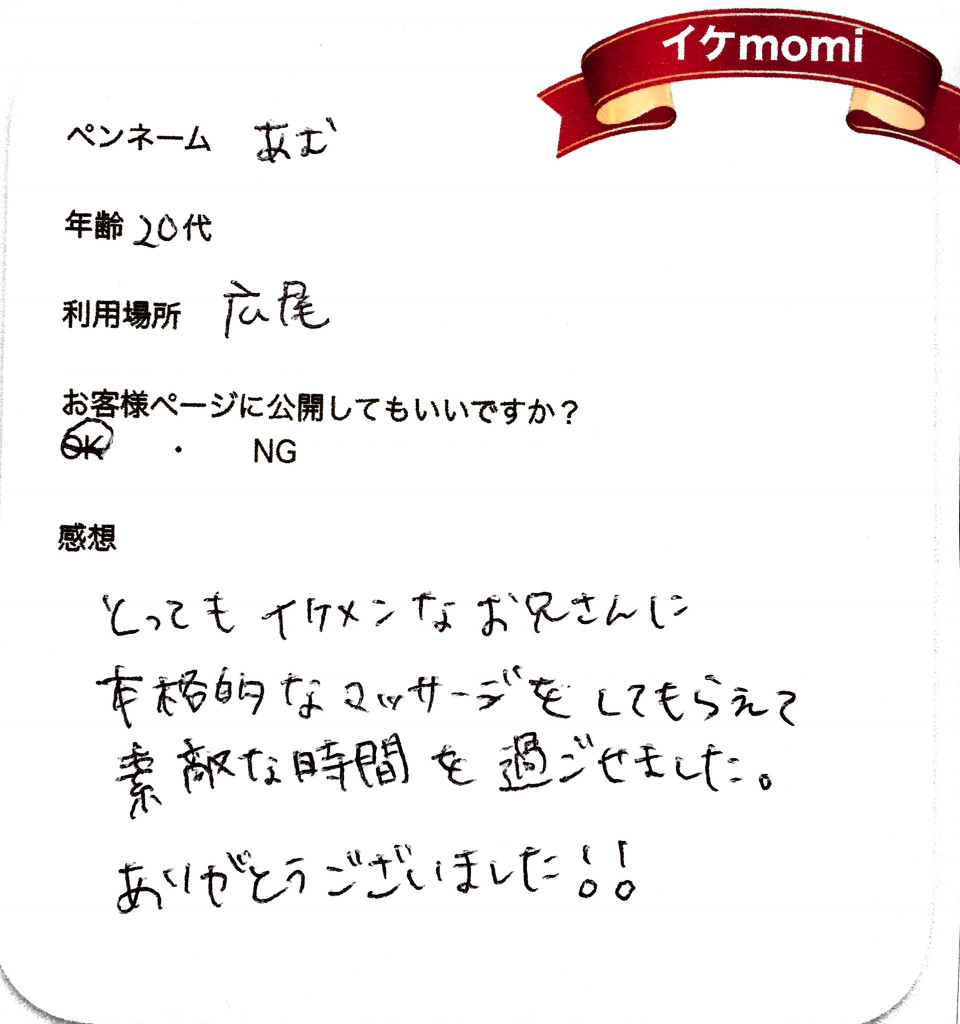 イケmomi
ペンネーム あむ
年齢 20代
利用場所 広尾
お客様ページに公開してもいいですか？
OK ・ NG
感想
とってもイケメンなお兄さんに
本格的なマッサージをしてもらえて
素敵な時間を過ごせました。
ありがとうございました!!